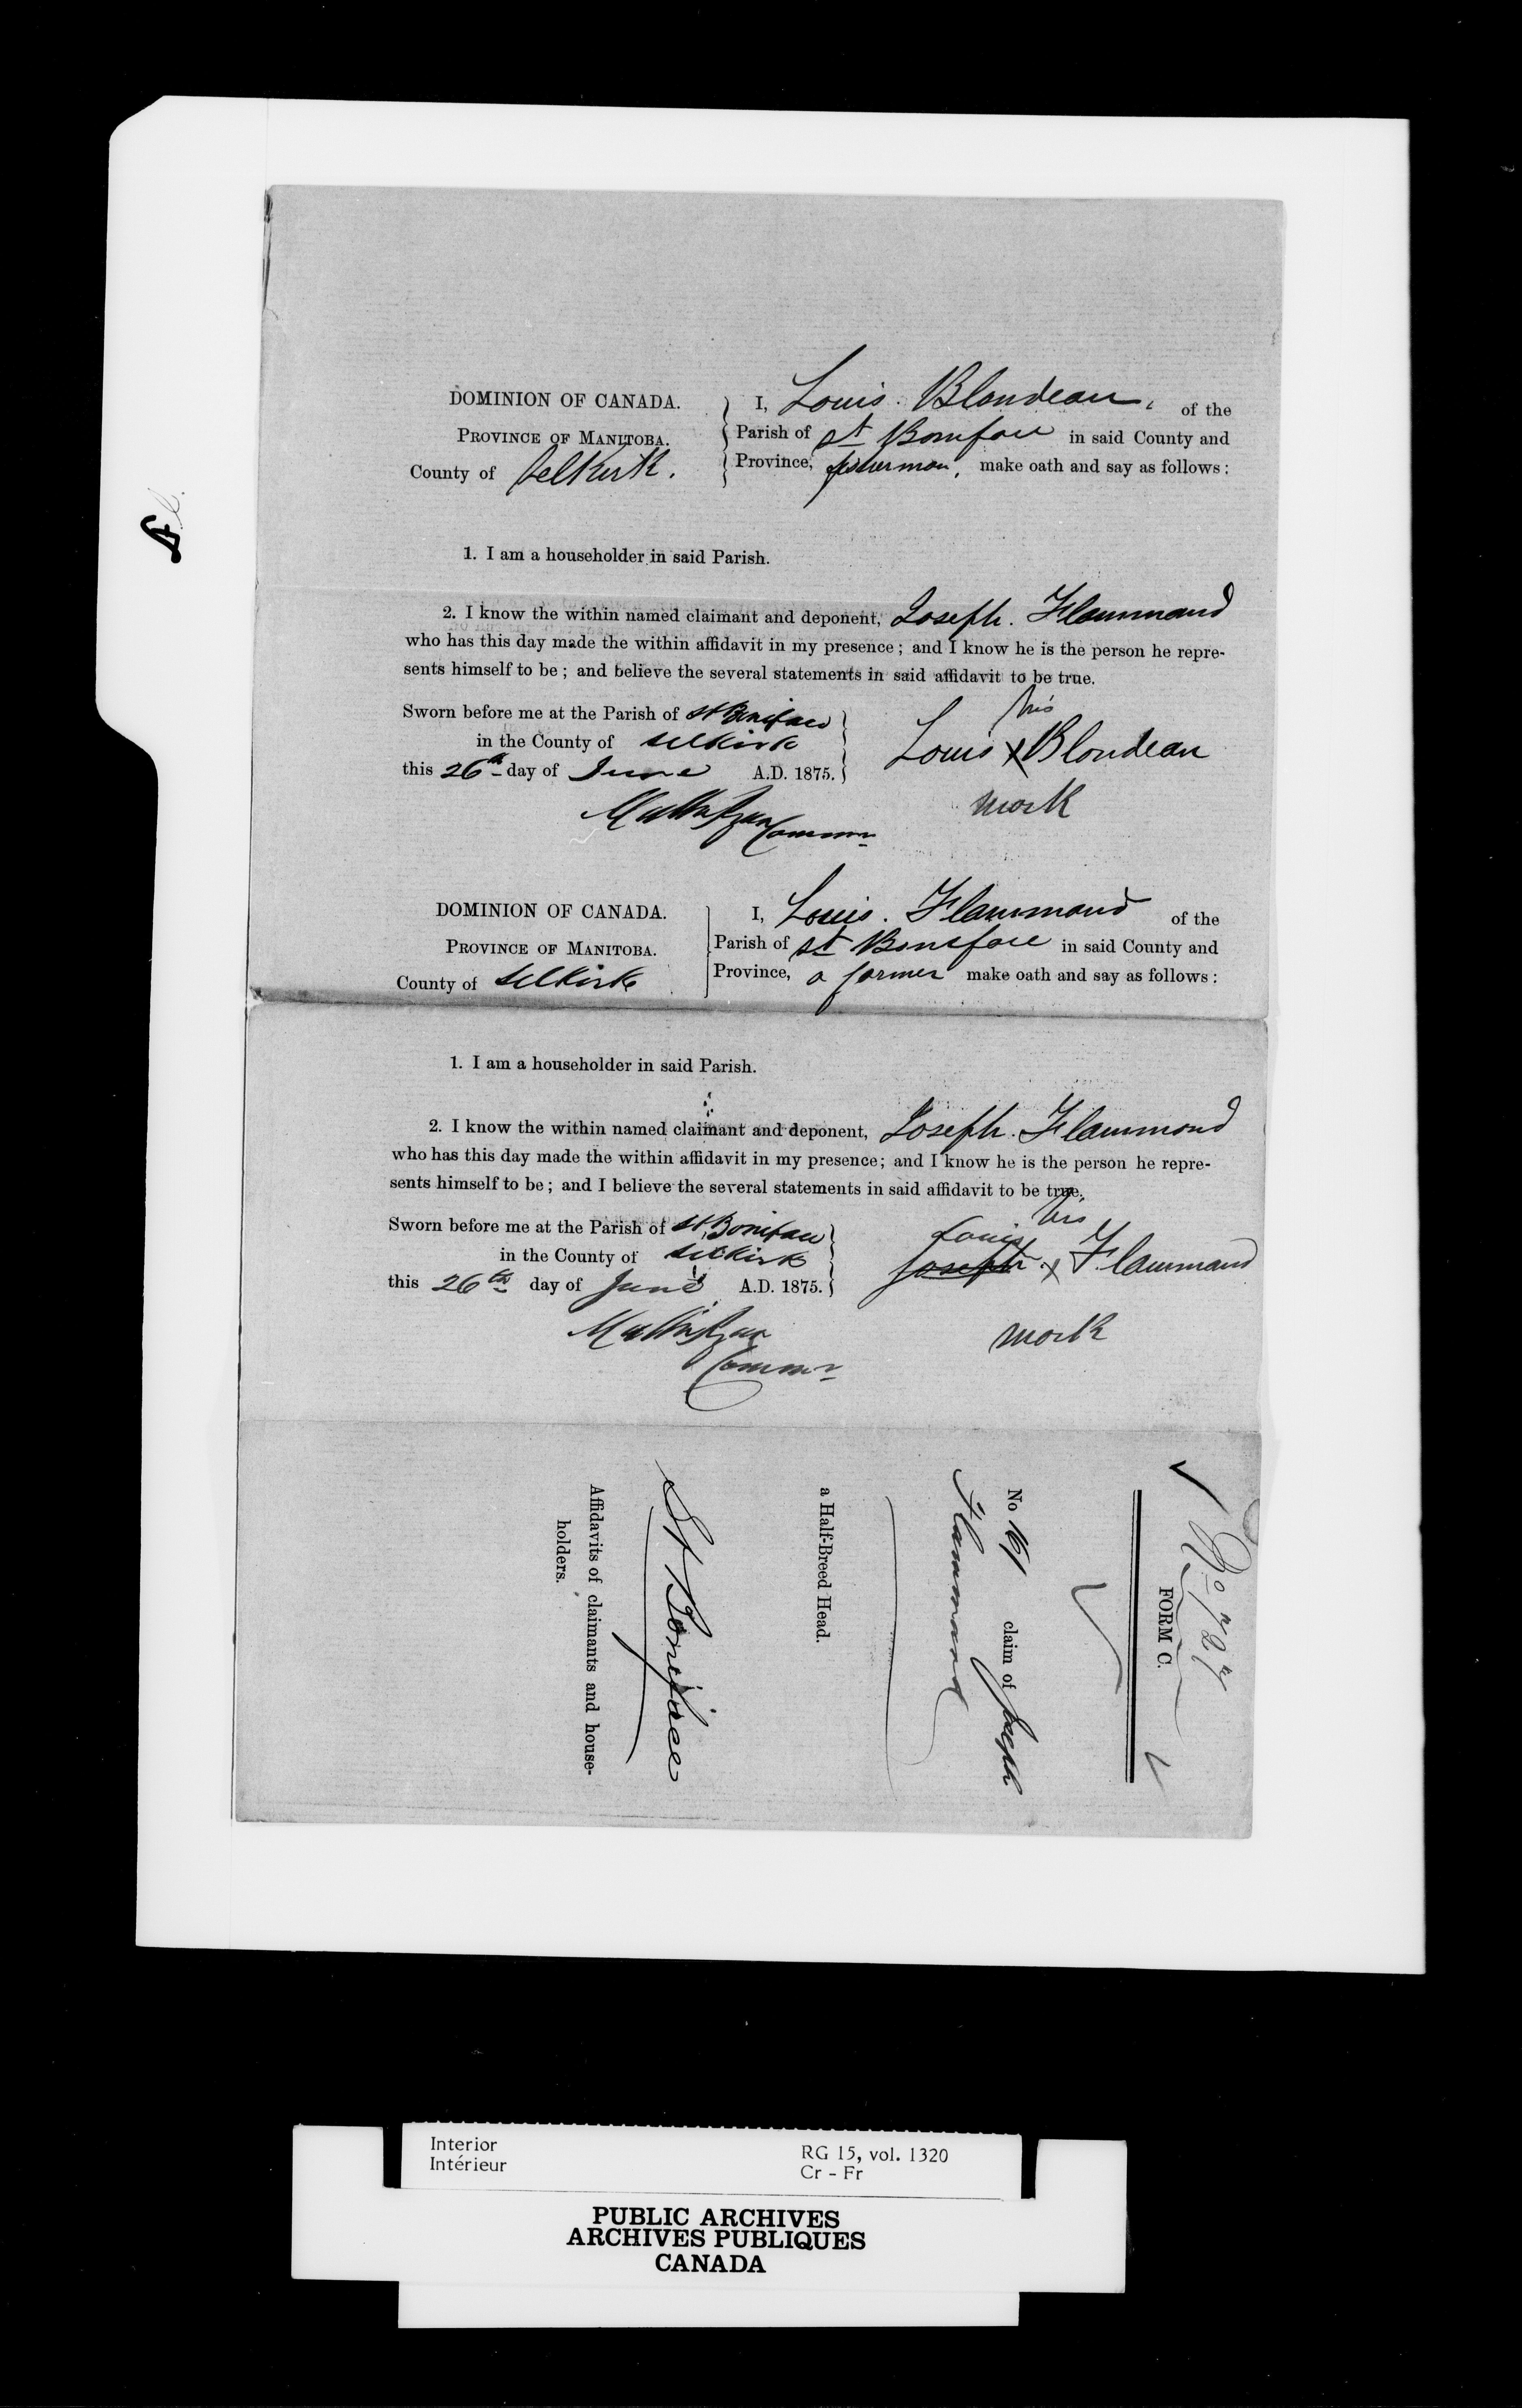 DOMINION OF CANADA.
PROVINCE OF MANITOBA.
County of Selkirk.
I, Louis. Blondeau, of the
Parish of St Boniface in said County and
Province, fisherman, make oath and say as follows:
1. I am a householder in said Parish.
2. I know the within named claimant and deponent, Joseph. Flammand
who has this day made the within affidavit in my presence; and I know he is the person he repre-
sents himself to be; and believe the several statements in said affidavit to be true.
Sworn before me at the Parish of St Boniface
in the County of Selkirk
this 26th day of June A.D. 1875.
his
Louis X Blondeau
mark
Commr
DOMINION OF CANADA.
PROVINCE OF MANITOBA.
County of Selkirk
I, Louis. Flammand of the
Parish of St Boniface in said County and
Province, a farmer make oath and say as follows:
1. I am a householder in said Parish.
2. I know the within named claimant and deponent, Joseph. Flammond
who has this day made the within affidavit in my presence; and I know he is the person he repre-
sents himself to be; and I believe the several statements in said affidavit to be true.
Sworn before me at the Parish of St. Boniface
in the County of Selkirk
this 26th day of June A.D. 1875.
his
Louis
Joseph X Flammand
mark
Commr
FORM C.
No 161 claim of Joseph
Flammand
a Half-Breed Head.
St Boniface
Affidavits of claimants and house-
holders.
Interior
Intérieur
RG 15, vol. 1320
Cr - Fr
PUBLIC ARCHIVES
ARCHIVES PUBLIQUES
CANADA